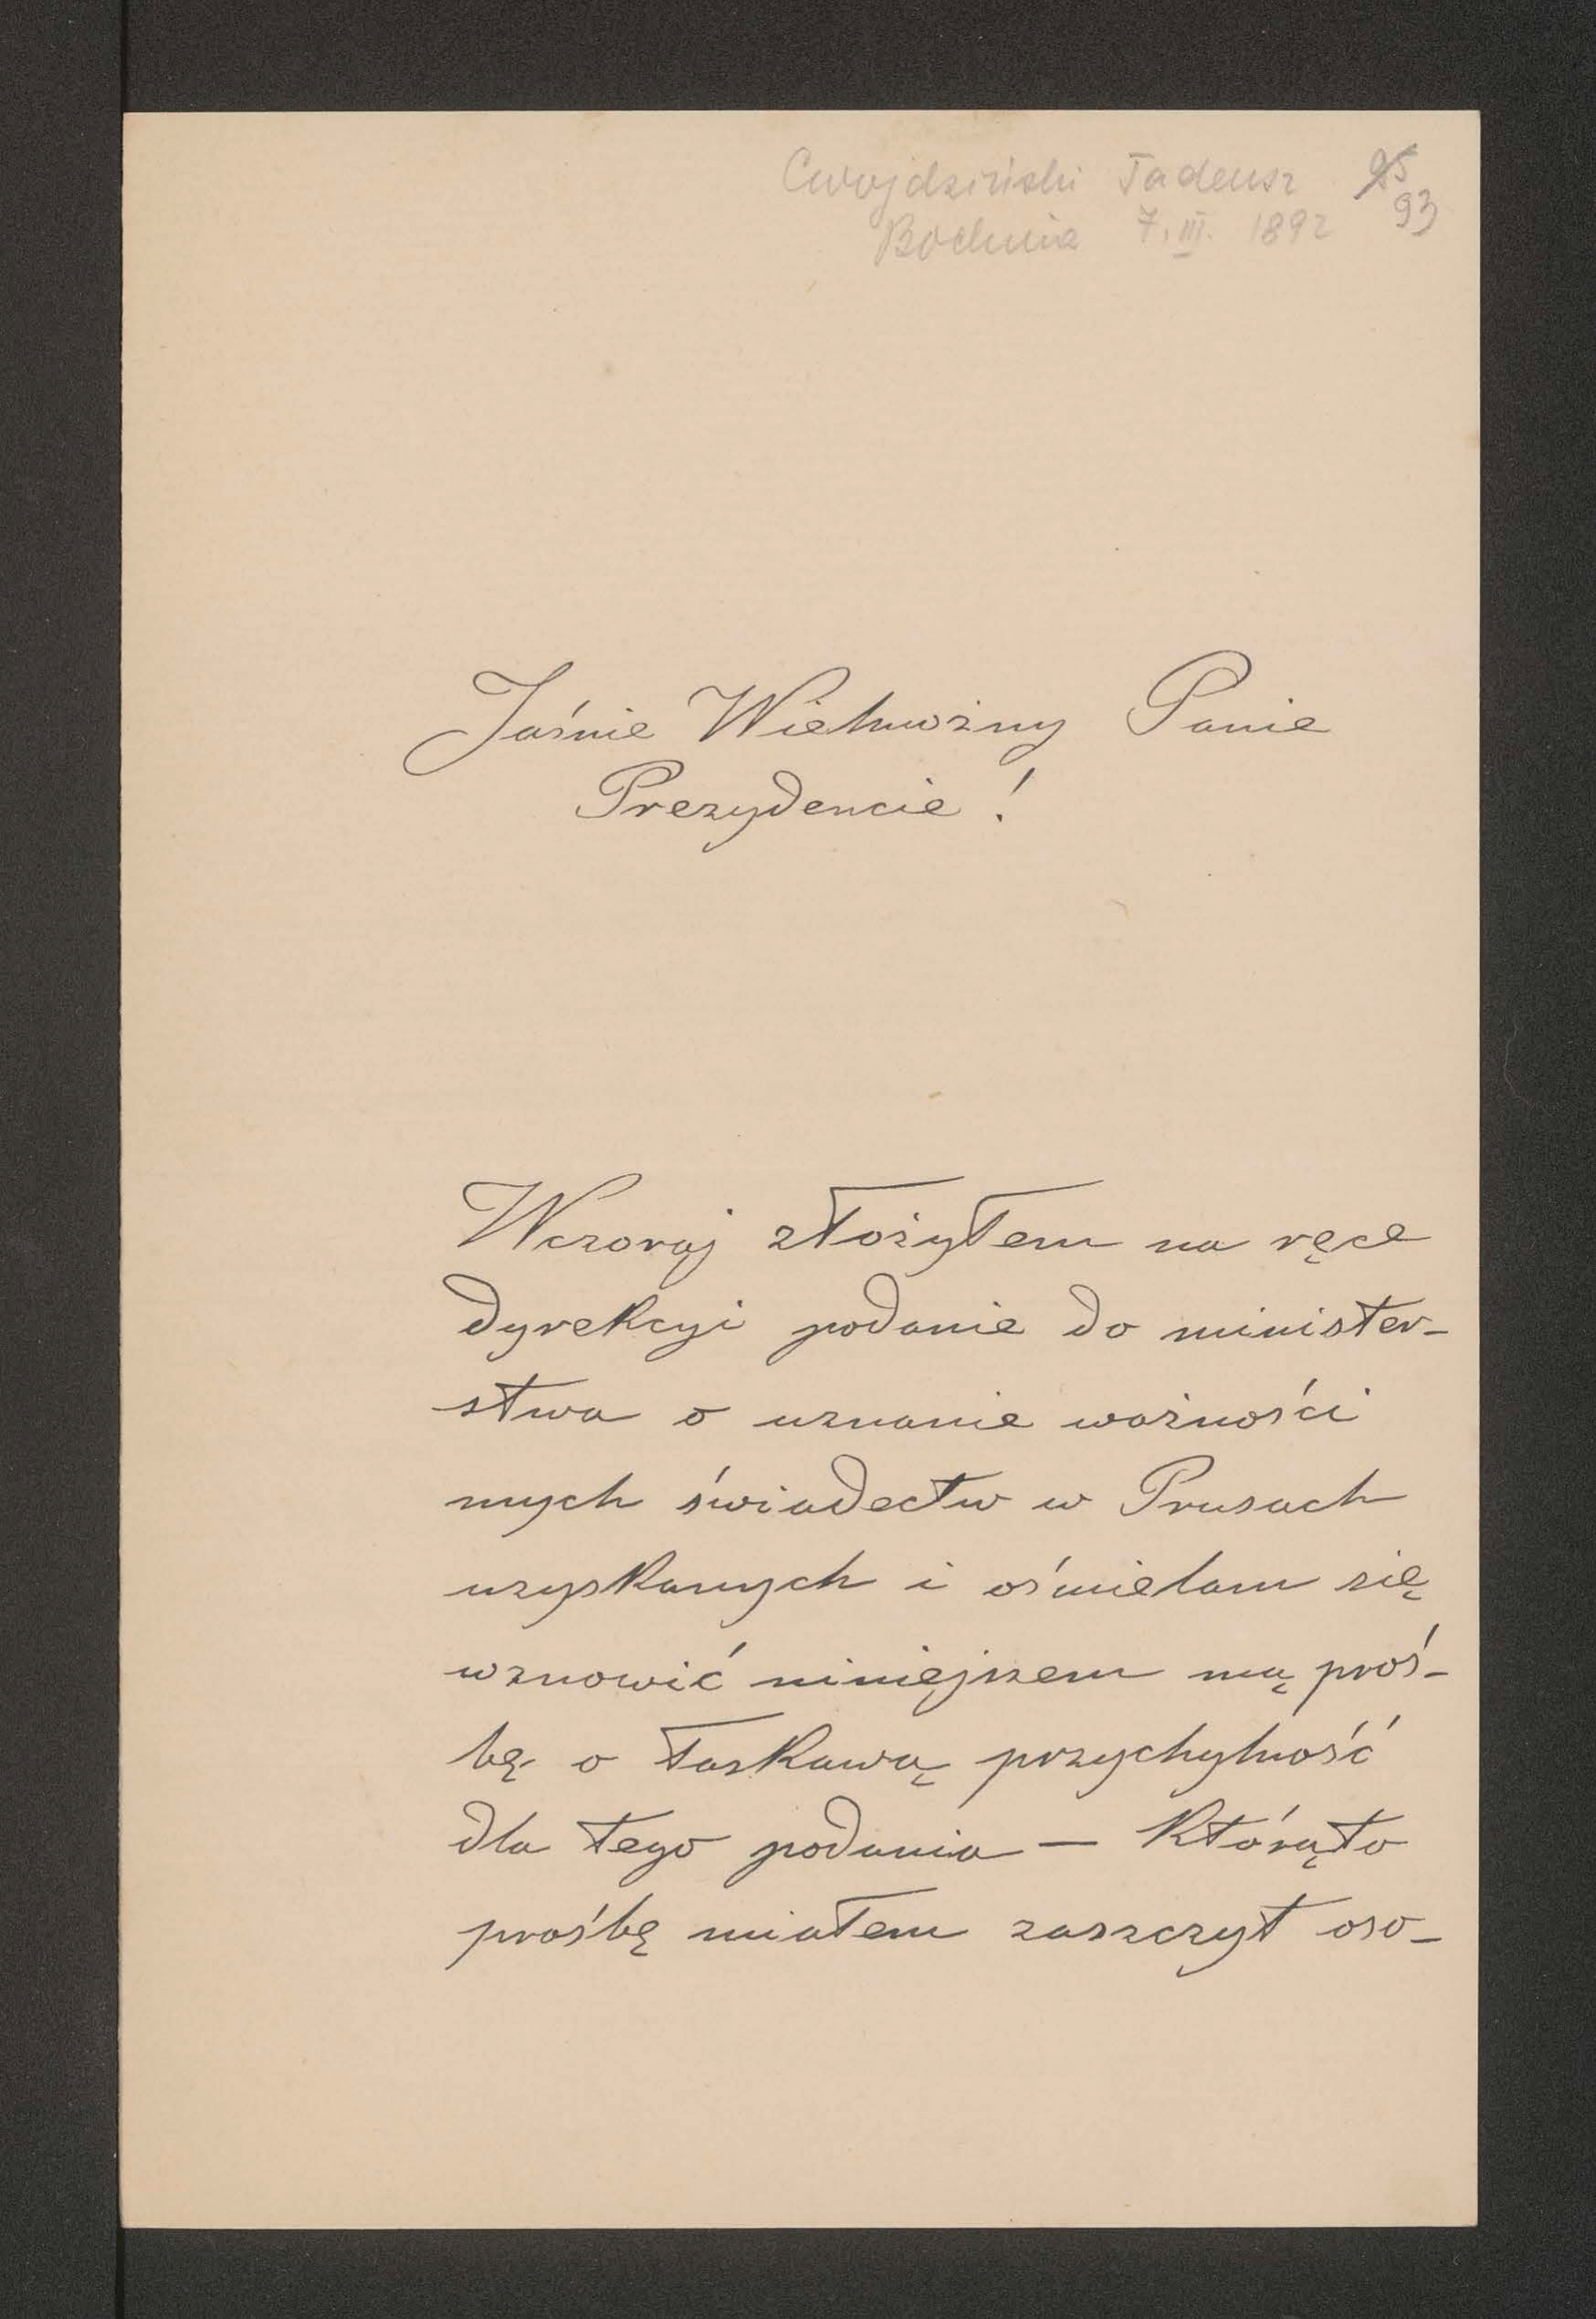 Cwojdziński Tadeusz 95
Bochnia 7. III. 1892 93
Jaśnie Wielmożny Panie
Prezydencie!
Wczoraj złożyłem na ręce
dyrekcyi podanie do minister-
stwa o uznanie ważności
mych świadectw w Prusach
uzyskanych i ośmielam się
wznowić niniejszem mą proś-
bę o łaskawą przychylność
dla tego podania — którąto
prośbę miałem zaszczyt oso-